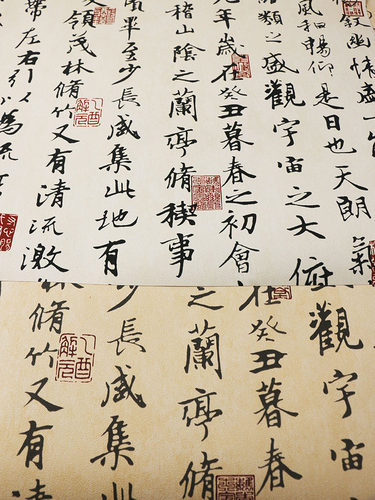 敘幽情盛一
風和暢仰是日也天朗氣
類之盛觀宇宙之大俯
九年歲在癸丑暮春之初會
稽山陰之蘭亭脩禊事
畢至少長咸集此地有
領茂林脩竹又有清流激
帶左右引以為流
乙酉解元
觀宇宙
在癸丑暮春
之蘭亭脩
少長咸集
林脩竹又有清
乙酉解元